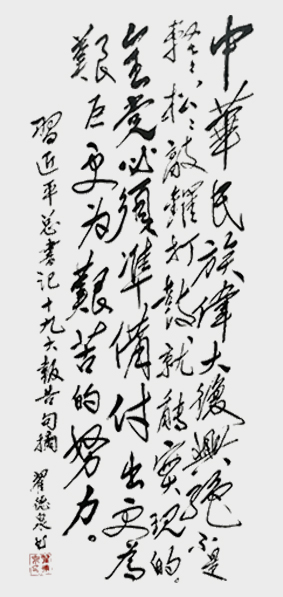 中華民族偉大復興絕不是
輕輕松松、敲鑼打鼓就能實現的。
全党必須準備付出更為
艱巨更为艱苦的努力。
習近平总書记十九大報告句摘
翟德泉书